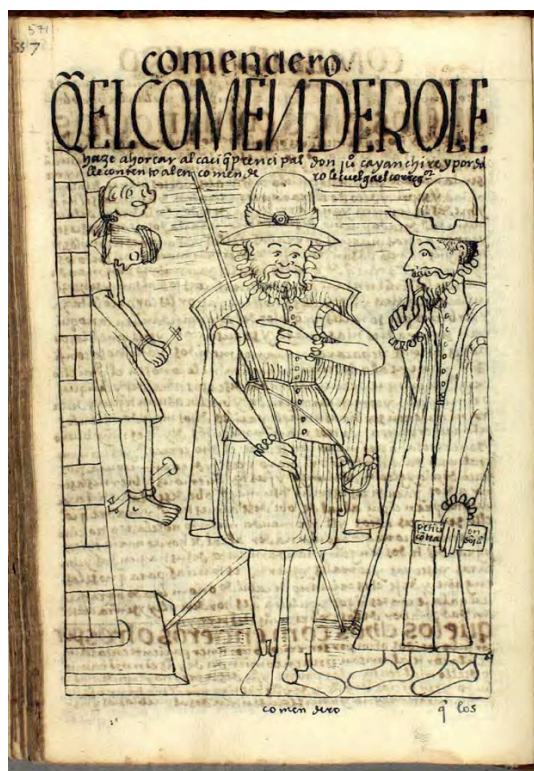 571
557
comendero
Q̃ EL COMENDERO LE
haze ahorcar al caciq̃ prencipal don juº cayanchire y por dar
lle contento al encomendero le cuelga el corregor
peticion
contra don juº
comendero
q̃ los